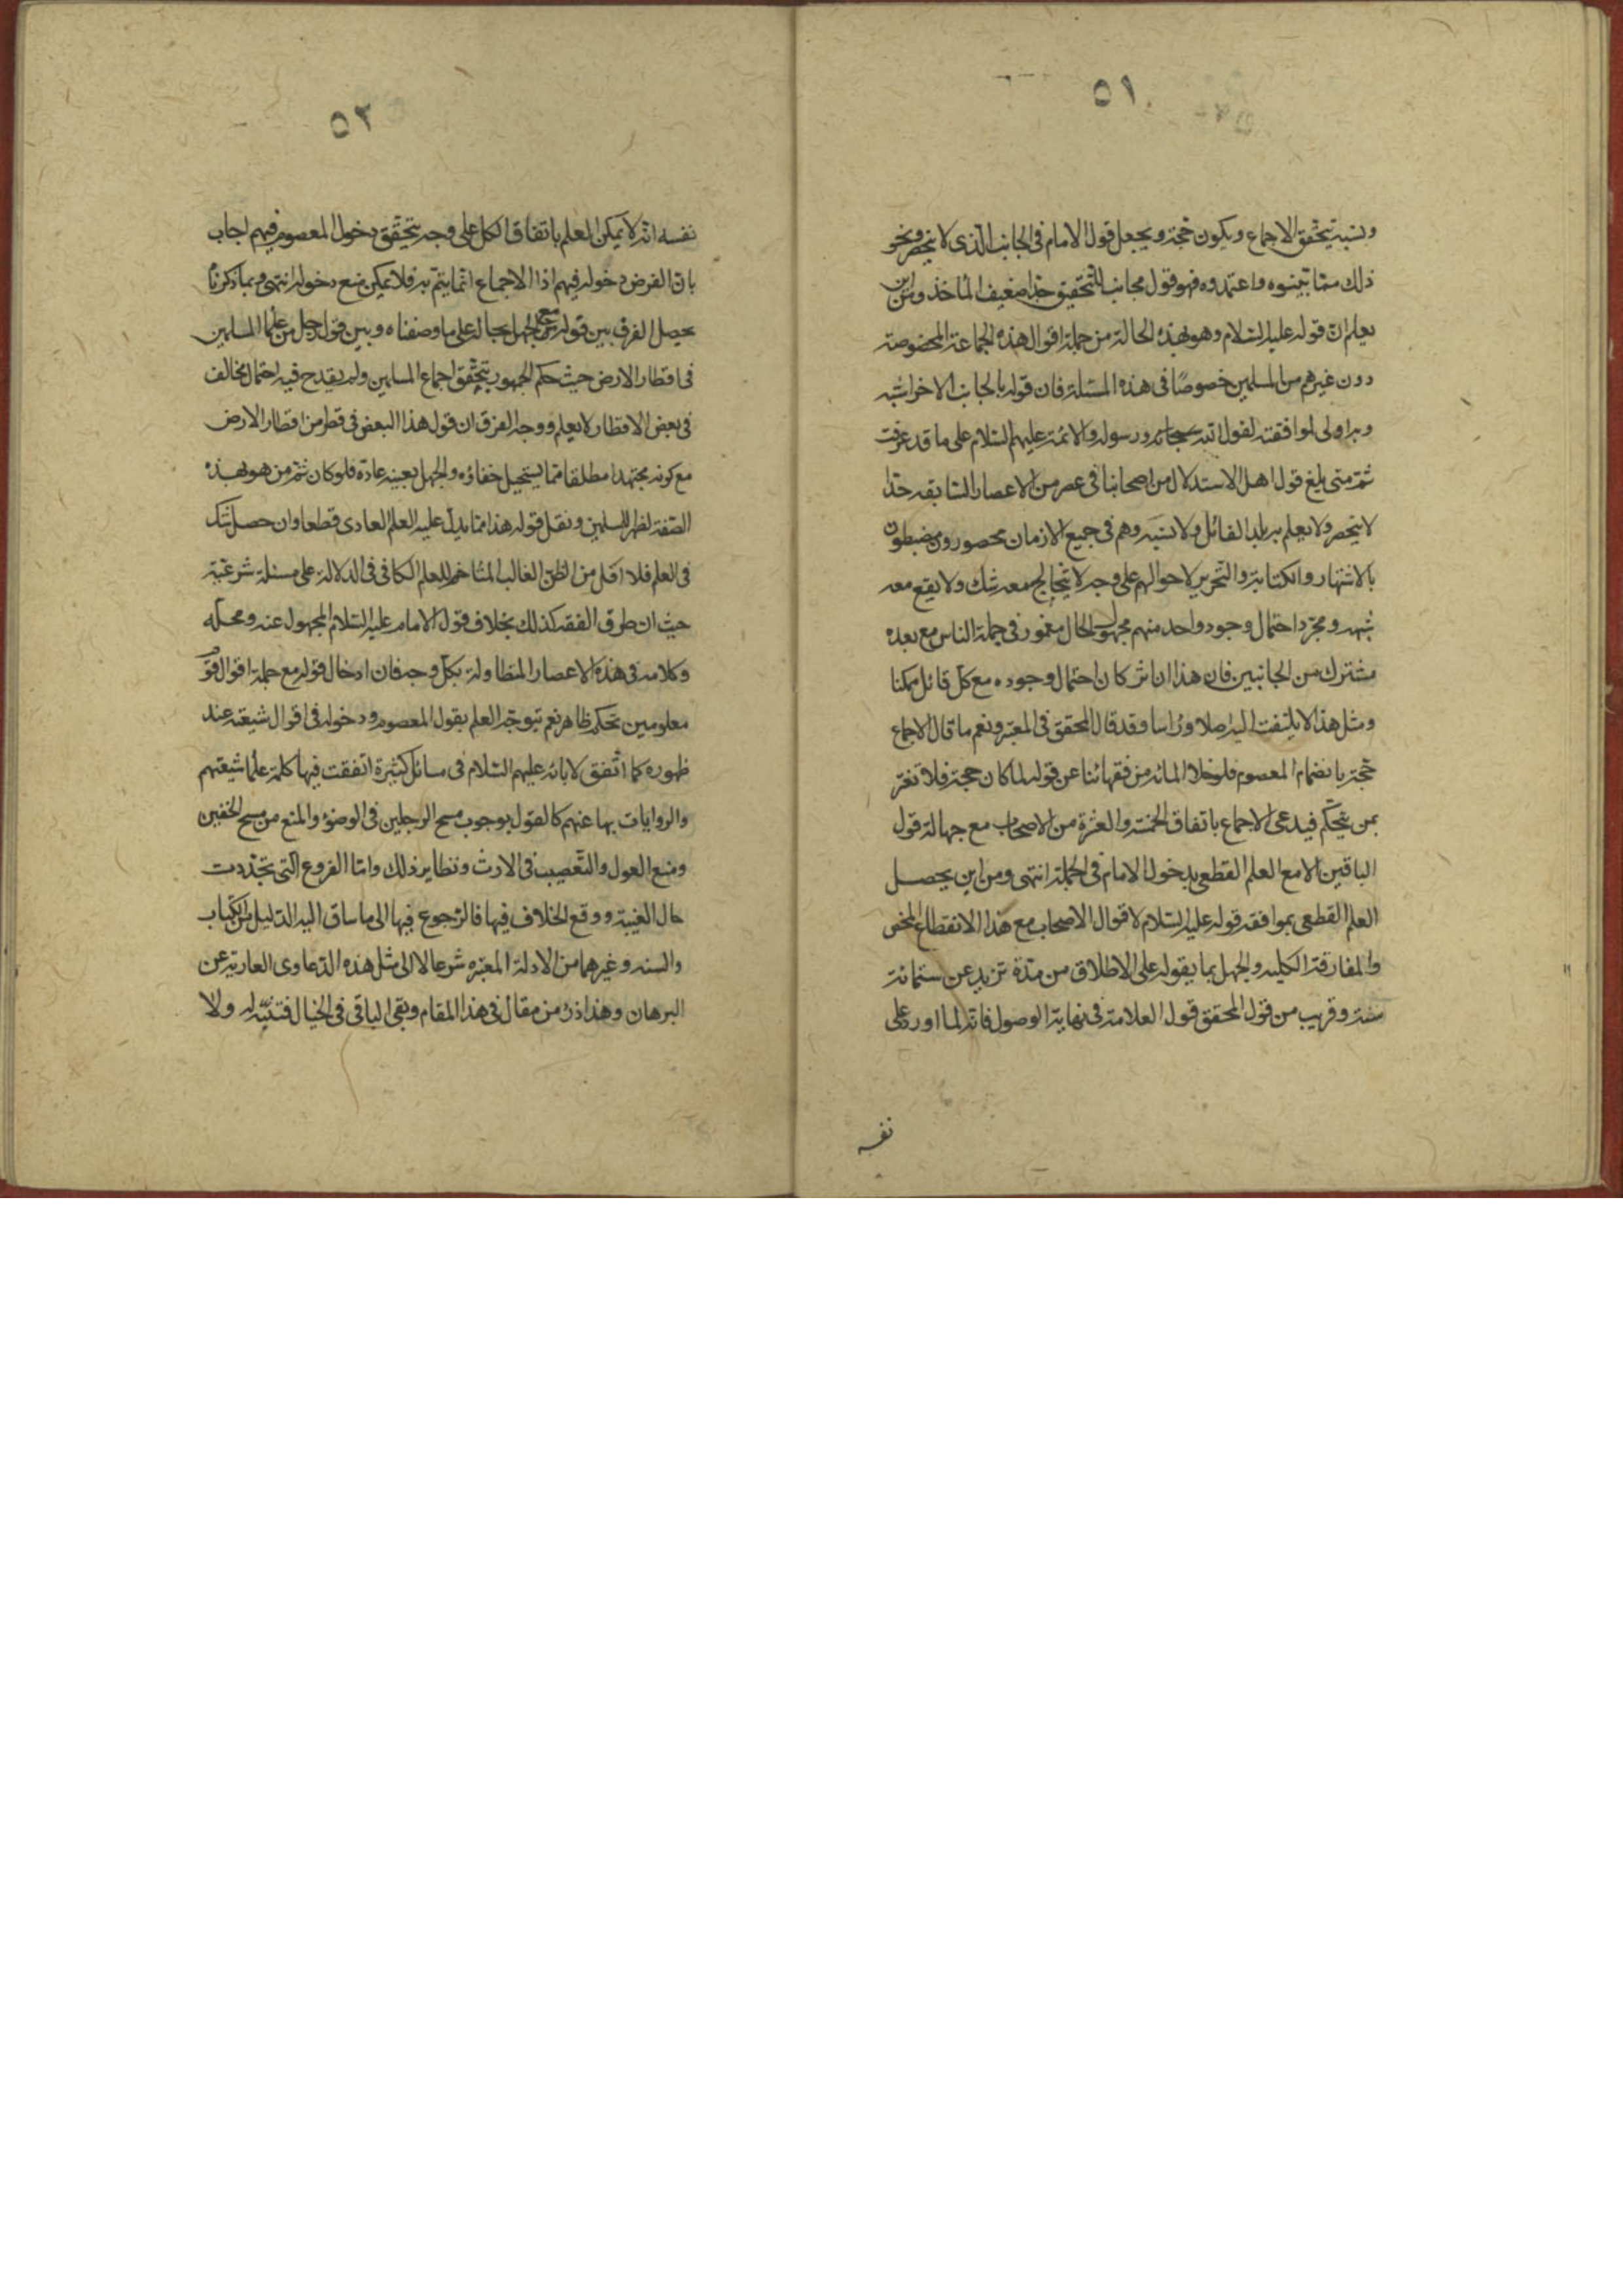 ٥١
ونسبه يتحقق الاجماع ويكون حجة ويجعل قول الامام في الجانب الذي لا ينحصر ونحو
ذلك مما بينوه واعتمدوه فهو قول مجانب للتحقيق جدا ضعيف الماخذ ومن اين
يعلم ان قوله عليه السلام وهو بهذه الحالة من جملة اقوال هذه الجماعة المخصوصة
دون غيرهم من المسلمين خصوصا في هذه المسئلة فان قوله بالجانب الاخر اشبه
وبه اولى لموافقته لقول الله سبحانه ورسوله والائمة عليهم السلام على ما قد عرفت
ثم متى بلغ قول اهل الاستدلال من اصحابنا في عصر من الاعصار السابقه حدا
لا ينحصر ولا يعلم به بلد القائل ولا نسبه وهم في جميع الازمان محصورون مضبطون
بالاشتهار والكتابة والتحرير لاحوالهم على وجه لا يتخالج معه شك ولا يقع معه
شبهه ومجرد احتمال وجود واحد منهم مجهول الحال مغمور في جملة الناس مع بعده
مشترك من الجانبين فان هذا ان اثر كان احتمال وجوده مع كل قائل ممكنا
ومثل هذا لا يلتفت اليه اصلا وراسا وقد قال المحقق في المعتبر ونعم ما قال الاجماع
حجة بانضمام المعصوم فلو خلا المائه من فقهائنا عن قوله لما كان حجة فلا تغتر
بمن يتحكم فيدعي الاجماع باتفاق الخمسة والعشرة من الاصحاب مع جهالة قول
الباقين الا مع العلم القطعي بدخول الامام في الجملة انتهى ومن اين يحصل
العلم القطعي بموافقه قوله عليه السلام لاقوال الاصحاب مع هذا الانقطاع المحض
والمفارقة الكليه والجهل بما يقوله على الاطلاق من مدة تزيد عن ستمائة
سنة وقريب من قول المحقق قول العلامة في نهاية الوصول فانه لما اورد على
نفسه
٥٢
نفسه انه لا يمكن العلم باتفاق الكل على وجه يتحقق دخول المعصوم فيهم اجاب
بان الفرض دخوله فيهم اذا الاجماع انما يتم به فلا يمكن منع دخوله انتهى وبما ذكرنا
يحصل الفرق بين قوله مع الجهل بحاله على ما وصفناه وبين قول رجل من علما المسلمين
في اقطار الارض حيث حكم الجمهور بتحقق اجماع المسلمين ولم يقدح فيه احتمال مخالف
في بعض الاقطار لا يعلم ووجه الفرق ان قول هذا البعض في قطر من اقطار الارض
مع كونه مجتهدا مطلقا مما يستحيل خفاؤه والجهل بعينه عادة فلو كان ثم من هو بهذه
الصفة لظهر للمسلمين ونقل قوله هذا مما يدل عليه العلم العادي قطعا وان حصل شك
في العلم فلا اقل من الظن الغالب المتاخم للعلم الكافي في الدلالة على مسئلة شرعية
حيث ان طرق الفقه كذلك بخلاف قول الامام عليه السلام المجهول عنه ومحله
وكلامه في هذه الاعصار المتطاولة بكل وجه فان ادخال قوله مع جملة اقوال قوم
معلومين تحكم ظاهر نعم يتوجه العلم بقول المعصوم ودخوله في اقوال شيعته عند
ظهوره كما اتفق لابائه عليهم السلام في مسائل كثيرة اتفقت فيها كلمة علما شيعتهم
والروايات بها عنهم كالقول بوجوب مسح الرجلين في الوضوء والمنع من مسح الخفين
ومنع العول والتعصيب في الارث ونظاير ذلك واما الفروع التي تجددت
حال الغيبة ووقع الخلاف فيها فالرجوع فيها الى ما ساق اليه الدليل من الكتاب
والسنه وغيرهما من الادلة المعتبره شرعا لا الى مثل هذه الدعاوى العارية عن
البرهان وهذا ذرء من مقال في هذا المقام وبقي الباقي في الخيال فتنبه له ولا